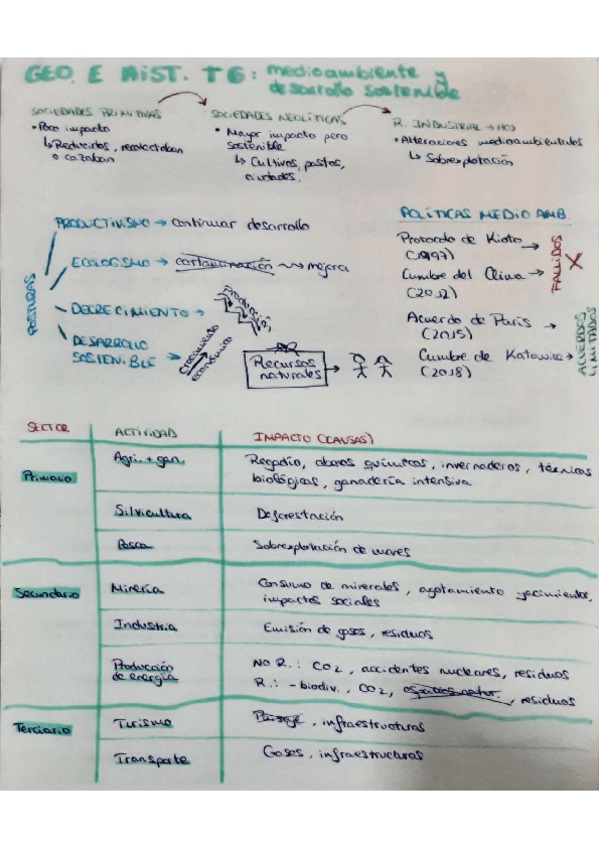 GEO. E HIST. T6: medioambiente y
desarrollo sostenible
SOCIEDADES PRIMITIVAS
• Poco impacto
↳ Reducidos, recolectaban
o cazaban
SOCIEDADES NEOLÍTICAS
• Mayor impacto pero
sostenible
↳ Cultivos, pastos,
ciudades.
R. INDUSTRIAL → HOY
• Alteraciones medioambientales
↳ Sobrexplotación
POSTURAS
PRODUCTIVISMO → continuar desarrollo
ECOLOGISMO → contaminación mejora
DECRECIMIENTO → producción
DESARROLLO
SOSTENIBLE → crecimiento
económico
Recursos
naturales →
POLÍTICAS MEDIO AMB.
Protocolo de Kioto →
(1997)
Cumbre del Clima →
(2012)
FALLIDOS
X
Acuerdo de París →
(2015)
Cumbre de Katowice →
(2018)
ACUERDOS
LIMITADOS
SECTOR ACTIVIDAD IMPACTO (CAUSAS)
Primario Agri. + gan. Regadío, abonos químicos, invernaderos, técnicas
biológicas, ganadería intensiva
Silvicultura Deforestación
Pesca Sobrexplotación de mares
Secundario Minería Consumo de minerales, agotamiento yacimientos,
impactos sociales
Industria Emisión de gases, residuos
Producción
de energía
NO R.: CO2, accidentes nucleares, residuos
R.: - biodiv., CO2, residuos
Terciario Turismo Paisaje, infraestructuras
Transporte Gases, infraestructuras